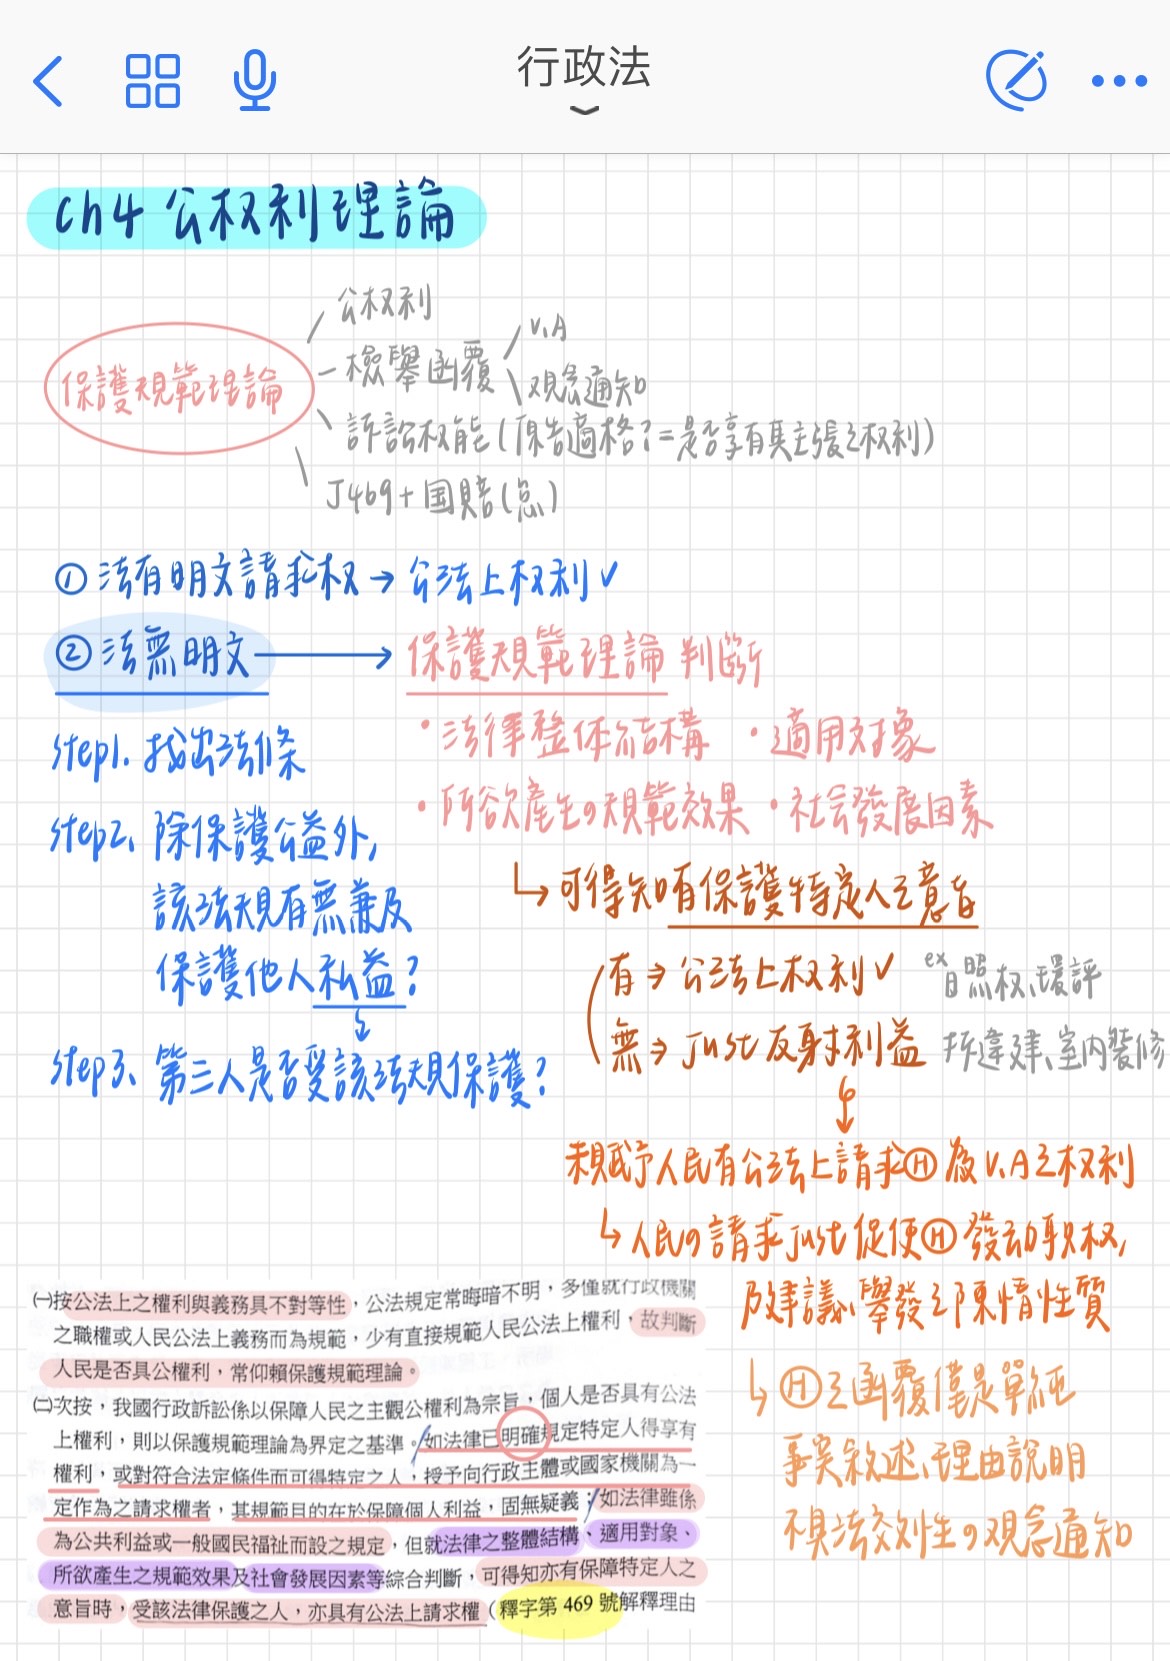 行政法
ch4 公权利理論
保護規範理論
公权利
檢舉函覆
V.A
观念通知
訴訟权能(原告適格?=是否享有其主張之权利)
J469+国賠(怠)
① 法有明文請求权→公法上权利✓
② 法無明文→保護規範理論 判斷
·法律整体結構 ·適用対象
·所欲產生の規範效果 ·社会發展因素
↳可得知有保護特定人之意旨
有⇒公法上权利✓ ex日照权、環評
無⇒just反射利益 拆違建、室內裝修
step1. 找出法條
step2. 除保護公益外,
該法規有無兼及
保護他人私益?
step3、第三人是否受該法規保護?
賦予人民有公法上請求Ⓗ為V.A之权利
↳人民の請求just促使Ⓗ發动职权,
及建議、舉發之陳情性質
↳Ⓗ之函覆僅是單純
事实敘述、理由說明
不具法效性の观念通知
㈠按公法上之權利與義務具不對等性,公法規定常晦暗不明,多僅就行政機關
之職權或人民公法上義務而為規範,少有直接規範人民公法上權利,故判斷
人民是否具公權利,常仰賴保護規範理論。
㈡次按,我國行政訴訟係以保障人民之主觀公權利為宗旨,個人是否具有公法
上權利,則以保護規範理論為界定之基準。如法律已明確規定特定人得享有
權利,或對符合法定條件而可得特定之人,授予向行政主體或國家機關為一
定作為之請求權者,其規範目的在於保障個人利益,固無疑義;如法律雖係
為公共利益或一般國民福祉而設之規定,但就法律之整體結構、適用對象、
所欲產生之規範效果及社會發展因素等綜合判斷,可得知亦有保障特定人之
意旨時,受該法律保護之人,亦具有公法上請求權(釋字第 469 號解釋理由